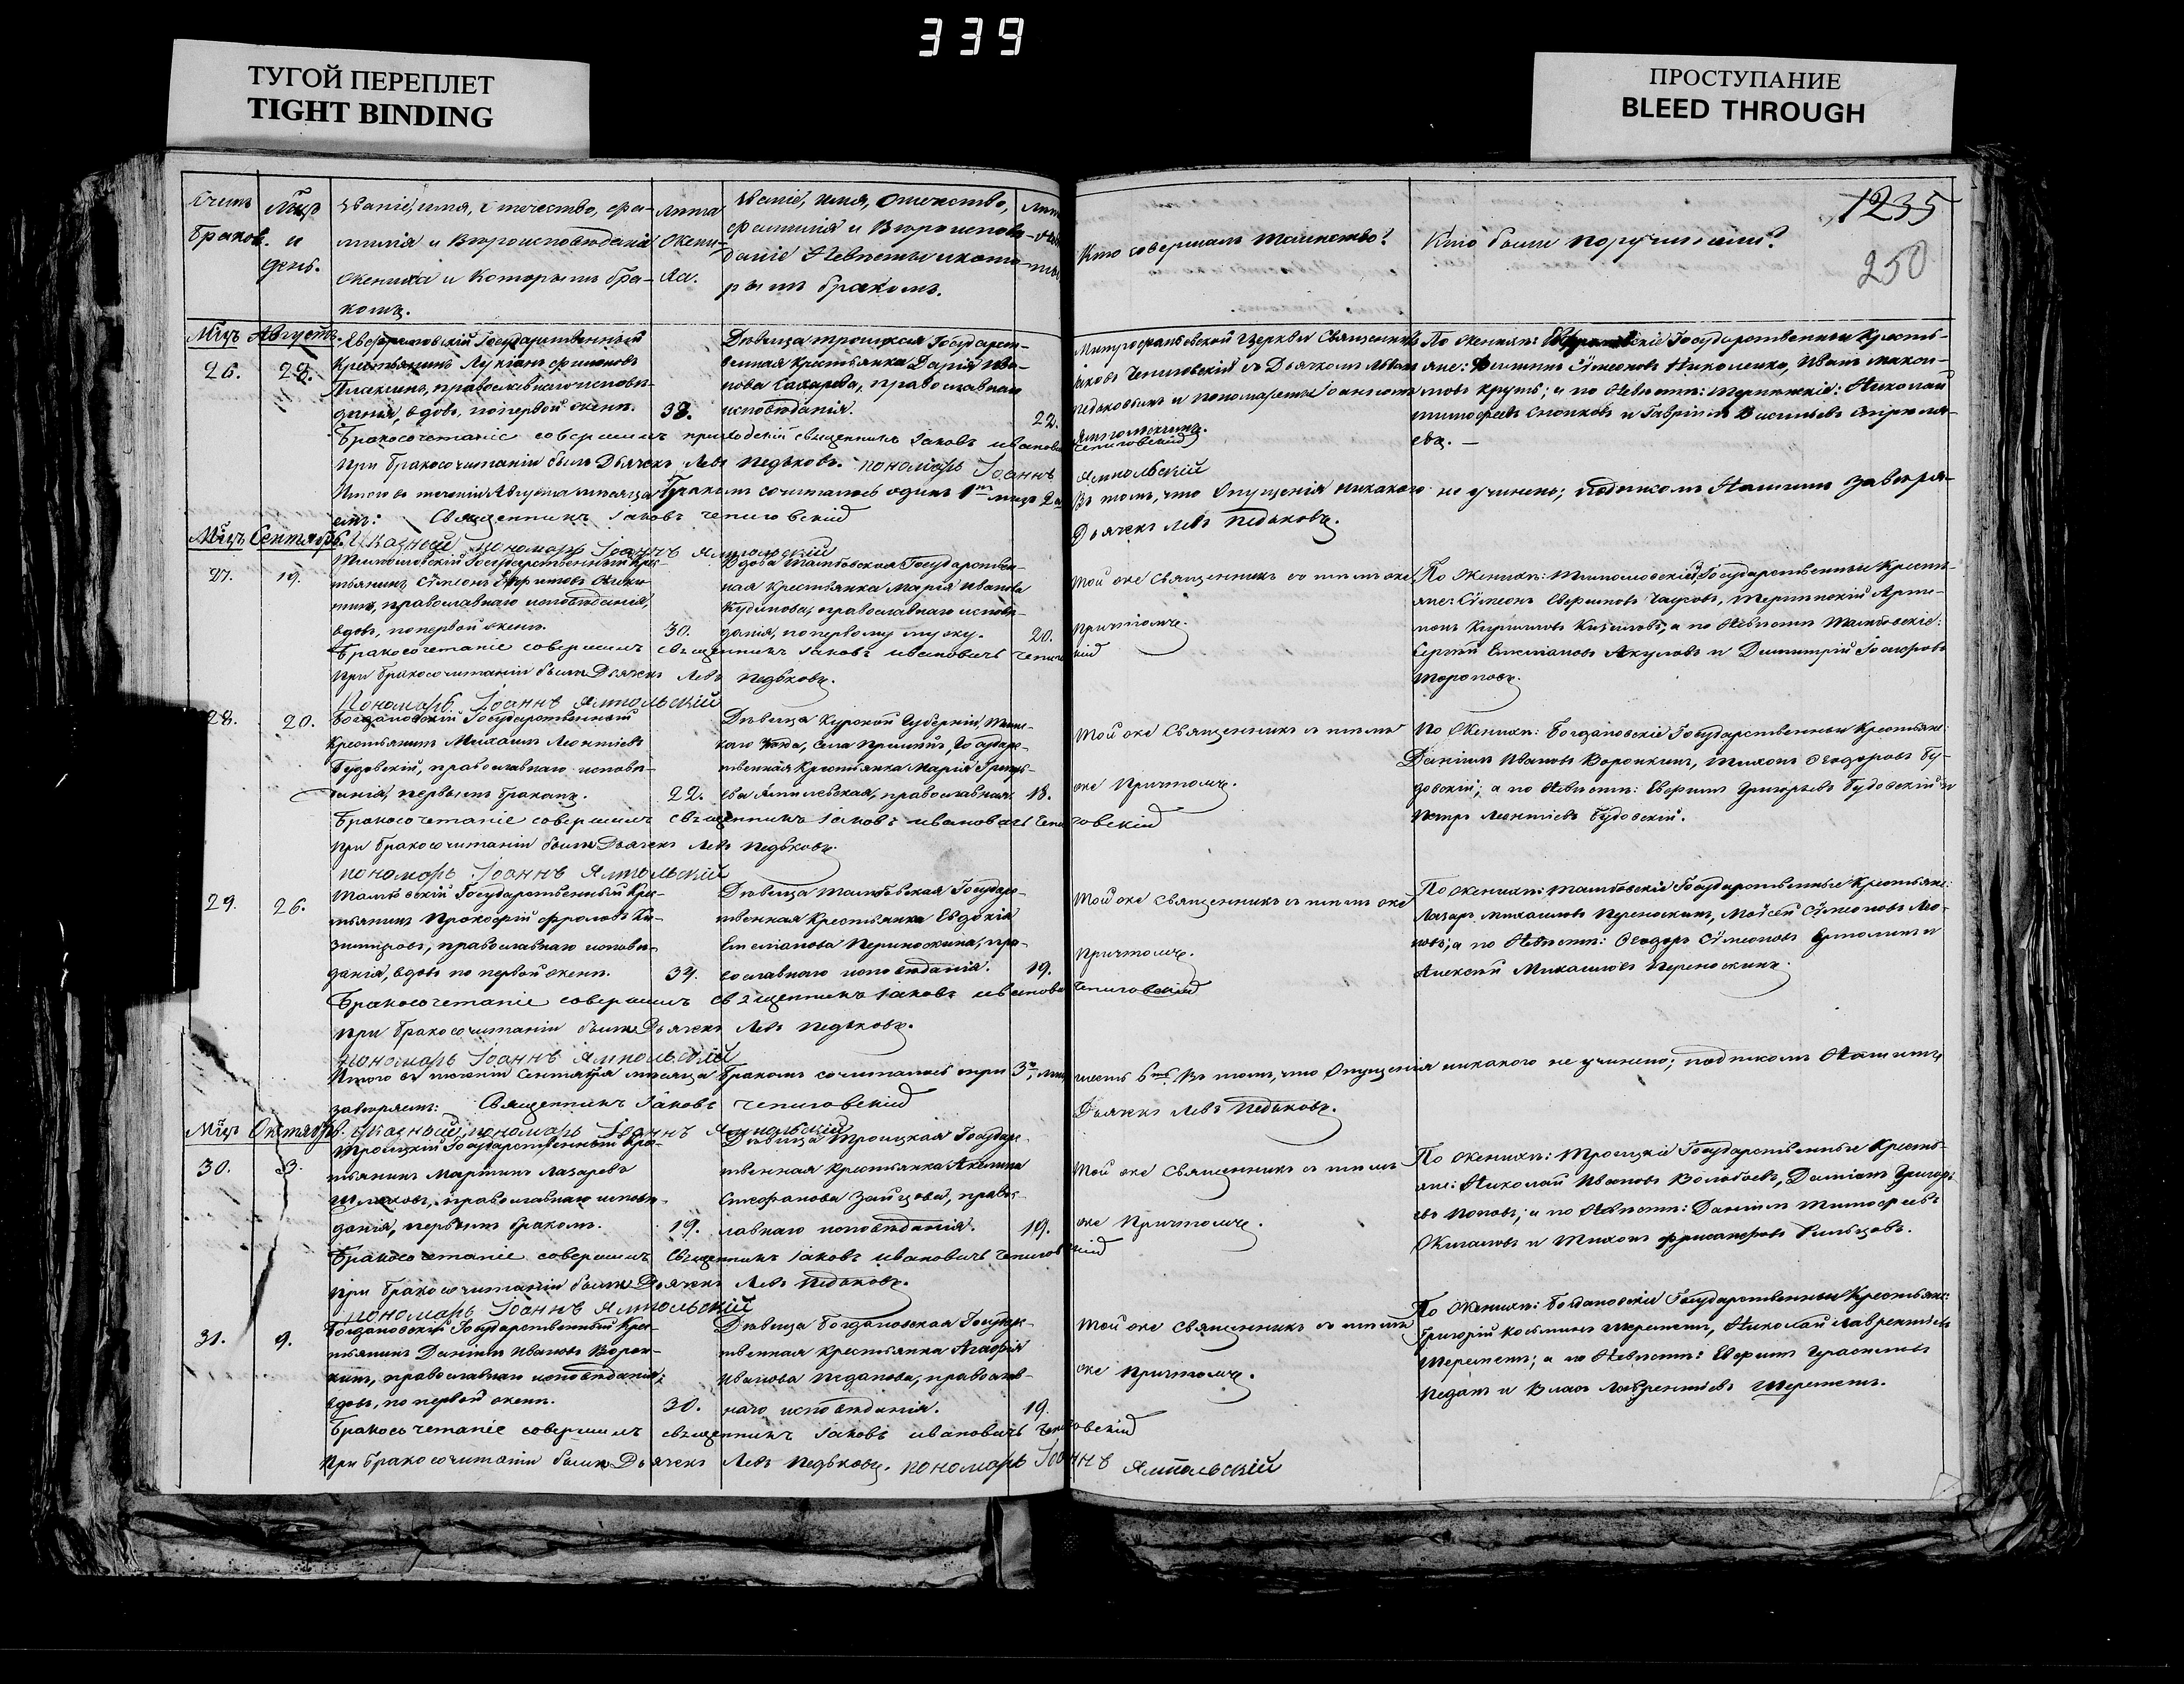 339
ТУГОЙ ПЕРЕПЛЕТ
TIGHT BINDING
ПРОСТУПАНИЕ
BLEED THROUGH
1235
250
Счетъ браковъ.
Мѣсц и день.
Званіе, имя, отечество, фа-
милія и вѣроисповѣданіе
жениха и которымъ бра-
комъ.
Лѣта жени-
ха.
Званіе, имя, отечество,
фамилія и вѣроисповѣ-
даніе невѣсты и кото-
рымъ бракомъ.
Кто совершалъ таинство?
Кто были поручители?
Мѣцъ Августъ.
26.
28.
Государственный
Крестьянинъ Лукіанъ
православнаго исповѣ-
данія, вдовъ, по первой женѣ.
38.
Дѣвица троицкая Государст-
венная крестьянка Дарія Ива-
нова Сахарова, православнаго
исповѣданія.
22.
Митрофановской церкви Священникъ
Іаковъ Чепиговскій съ Дьячкомъ Львомъ
Педьковымъ и пономаремъ Іоанномъ
Ямпольскимъ.
По женихѣ: Государственные Кресть-
яне: Филиппъ Сѵмеоновъ Николенко, Иванъ
Крутъ; а по Невѣстѣ: Николай
Тимофеевъ и Гавріилъ Васильевъ
Бракосочетаніе совершилъ приходскій священникъ Іаковъ Ивановичъ
Чепиговскій
При бракосочитаніи былъ Дьячекъ Левъ Педьковъ. пономарь Іоаннъ
Ямпольскій
Итого въ теченіи Августа мѣсяца бракомъ сочиталось одинъ 1
Въ томъ, что опущенія никакого не учинено; подписомъ Нашимъ завѣря-
емъ: Священникъ Іаковъ Чепиговскій
Дьячекъ Левъ Педьковъ.
Мѣцъ Сентябрь.
Указный пономарь Іоаннъ Ямпольскій
27.
19.
Государственный Крес-
тьянинъ Сѵмеонъ
православнаго исповѣданія,
вдовъ, по первой женѣ.
30.
Вдова Тамбовская Государствен-
ная крестьянка Марія Иванова
Кудинова, православнаго исповѣ-
данія, по первому мужу.
20.
Той же Священникъ съ тѣмъ же
Причтомъ.
По женихѣ: Государственные Кресть-
яне: Сѵмеонъ Евфимовъ
Кирилловъ а по Невѣстѣ Тамбовскіе:
Сергѣй Емеліановъ Акуловъ и Димитрій
Тороповъ.
Бракосочетаніе совершилъ священникъ Іаковъ Ивановичъ Чепиговскій
При бракосочитаніи былъ Дьячекъ Левъ Педьковъ.
Пономарь Іоаннъ Ямпольскій
28.
20.
Богдановскій Государственный
Крестьянинъ Михаилъ Леонтіевъ
Будовскій, православнаго исповѣ-
данія, первымъ бракомъ.
22.
Дѣвица Курской Губерніи,
Уѣзда, села Государс-
твенная крестьянка Марія Григорь-
ева православная.
18.
Той же Священникъ съ тѣмъ
же Причтомъ.
По женихѣ: Богдановскіе Государственные Крестьяне:
Даніилъ Ивановъ Воронкинъ, Тихонъ Ѳеодоровъ Бу-
довскій; а по Невѣстѣ: Евфимъ Григорьевъ Будовскій и
Петръ Леонтіевъ Будовскій.
Бракосочетаніе совершилъ священникъ Іаковъ Ивановичъ Чепиговскій
При бракосочитаніи былъ Дьячекъ Левъ Педьковъ.
пономарь Іоаннъ Ямпольскій
29.
26.
Тамбовскій Государственный Крес-
тьянинъ Прокофій Фроловъ
православнаго исповѣ-
данія, вдовъ по первой женѣ.
34.
Дѣвица Тамбовская Государс-
твенная крестьянка Евдокія
Емеліанова пра-
вославнаго исповѣданія.
19.
Той же Священникъ съ тѣмъ же
Причтомъ.
По женихѣ: Тамбовскіе Государственные Крестьяне:
Лазарь Михаиловъ Мойсей Сѵмеоновъ
а по Невѣстѣ: Ѳеодоръ Сѵмеоновъ Ермолинъ и
Алексѣй Михаиловъ
Бракосочетаніе совершилъ священникъ Іаковъ Ивановъ Чепиговскій
При бракосочитаніи былъ Дьячекъ Левъ Педьковъ.
Пономарь Іоаннъ Ямпольскій
Итого въ теченіи Сентября мѣсяца бракомъ сочиталось три 3,
шесть 6. Въ томъ, что опущенія никакого не учинено; подписомъ Нашимъ
завѣряемъ: Священникъ Іаковъ Чепиговскій
Дьячекъ Левъ Педьковъ.
Мѣцъ Октябрь.
Указный пономарь Іоаннъ Ямпольскій
30.
3.
Троицкій Государственный Крес-
тьянинъ Мартинъ Лазаревъ
православнаго исповѣ-
данія, первымъ бракомъ.
19.
Дѣвица Троицкая Государс-
твенная крестьянка Акилина
Стефанова Зайцова, правос-
лавнаго исповѣданія.
19.
Той же Священникъ съ тѣмъ
же Причтомъ.
По женихѣ: Троицкіе Государственные Кресть-
яне: Николай Ивановъ Волобоевъ, Даміанъ Григорь-
евъ Поповъ; а по Невѣстѣ: Даніилъ Тимофеевъ
и Тихонъ
Бракосочетаніе совершилъ священникъ Іаковъ Ивановичъ Чепиговскій
При бракосочитаніи былъ Дьячекъ Левъ Педьковъ.
пономарь Іоаннъ Ямпольскій
31.
9.
Богдановскій Государственный Крес-
тьянинъ Даніилъ Ивановъ Ворон-
кинъ, православнаго исповѣданія;
вдовъ, по первой женѣ.
30.
Дѣвица Богдановская Государс-
твенная крестьянка Агафія
Иванова Педанова, православ-
наго исповѣданія.
19.
Той же Священникъ съ тѣмъ
же Причтомъ.
По женихѣ: Богдановскіе Государственные Крестьяне:
Григорій Косьминъ Шереметъ, Николай Лаврентіевъ
Шереметъ; а по Невѣстѣ: Евфимъ Герасимовъ
Педанъ и Власъ Лаврентіевъ Шереметъ.
Бракосочетаніе совершилъ священникъ Іаковъ Ивановичъ Чепиговскій
При бракосочитаніи былъ Дьячекъ Левъ Педьковъ. пономарь Іоаннъ Ямпольскій